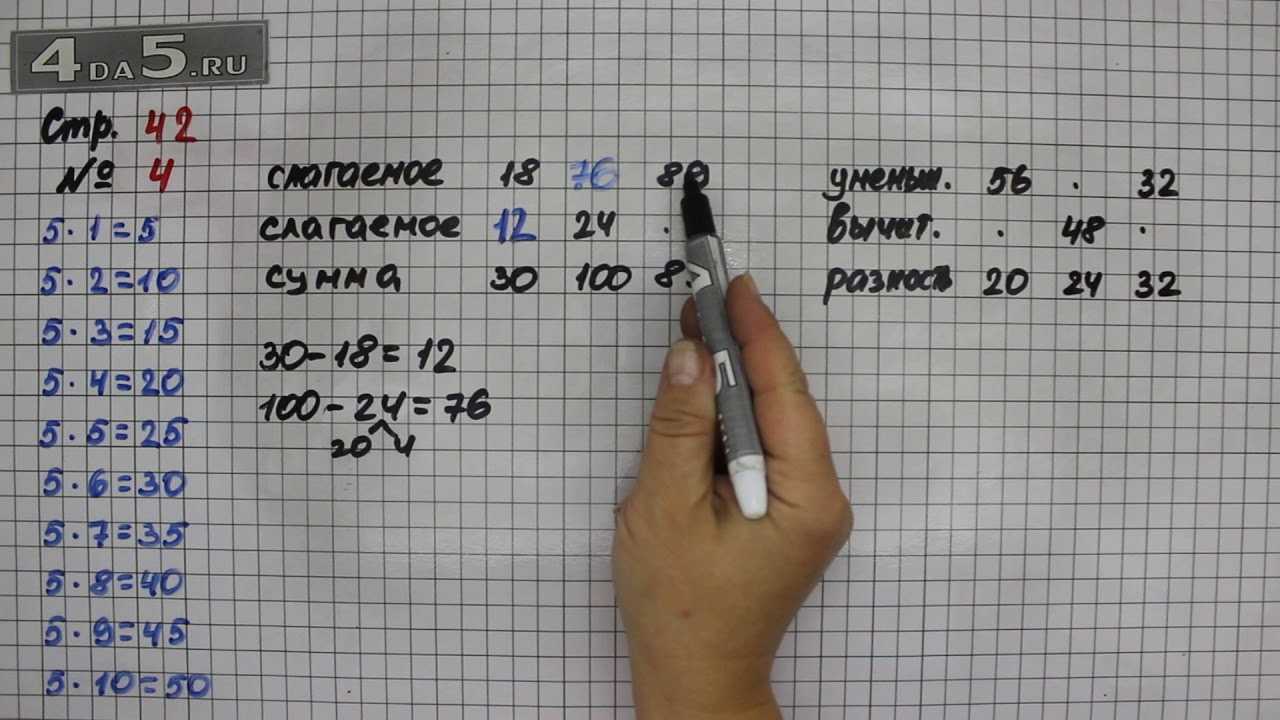 4DA5.RU
Стр. 42
№ 4
5·1=5
5·2=10
5·3=15
5·4=20
5·5=25
5·6=30
5·7=35
5·8=40
5·9=45
5·10=50
слагаемое 18 76 80
слагаемое 12 24 .
сумма 30 100 8
30-18=12
100-24=76
20 4
уменьш. 56 . 32
вычит. . 48 .
разность 20 24 32